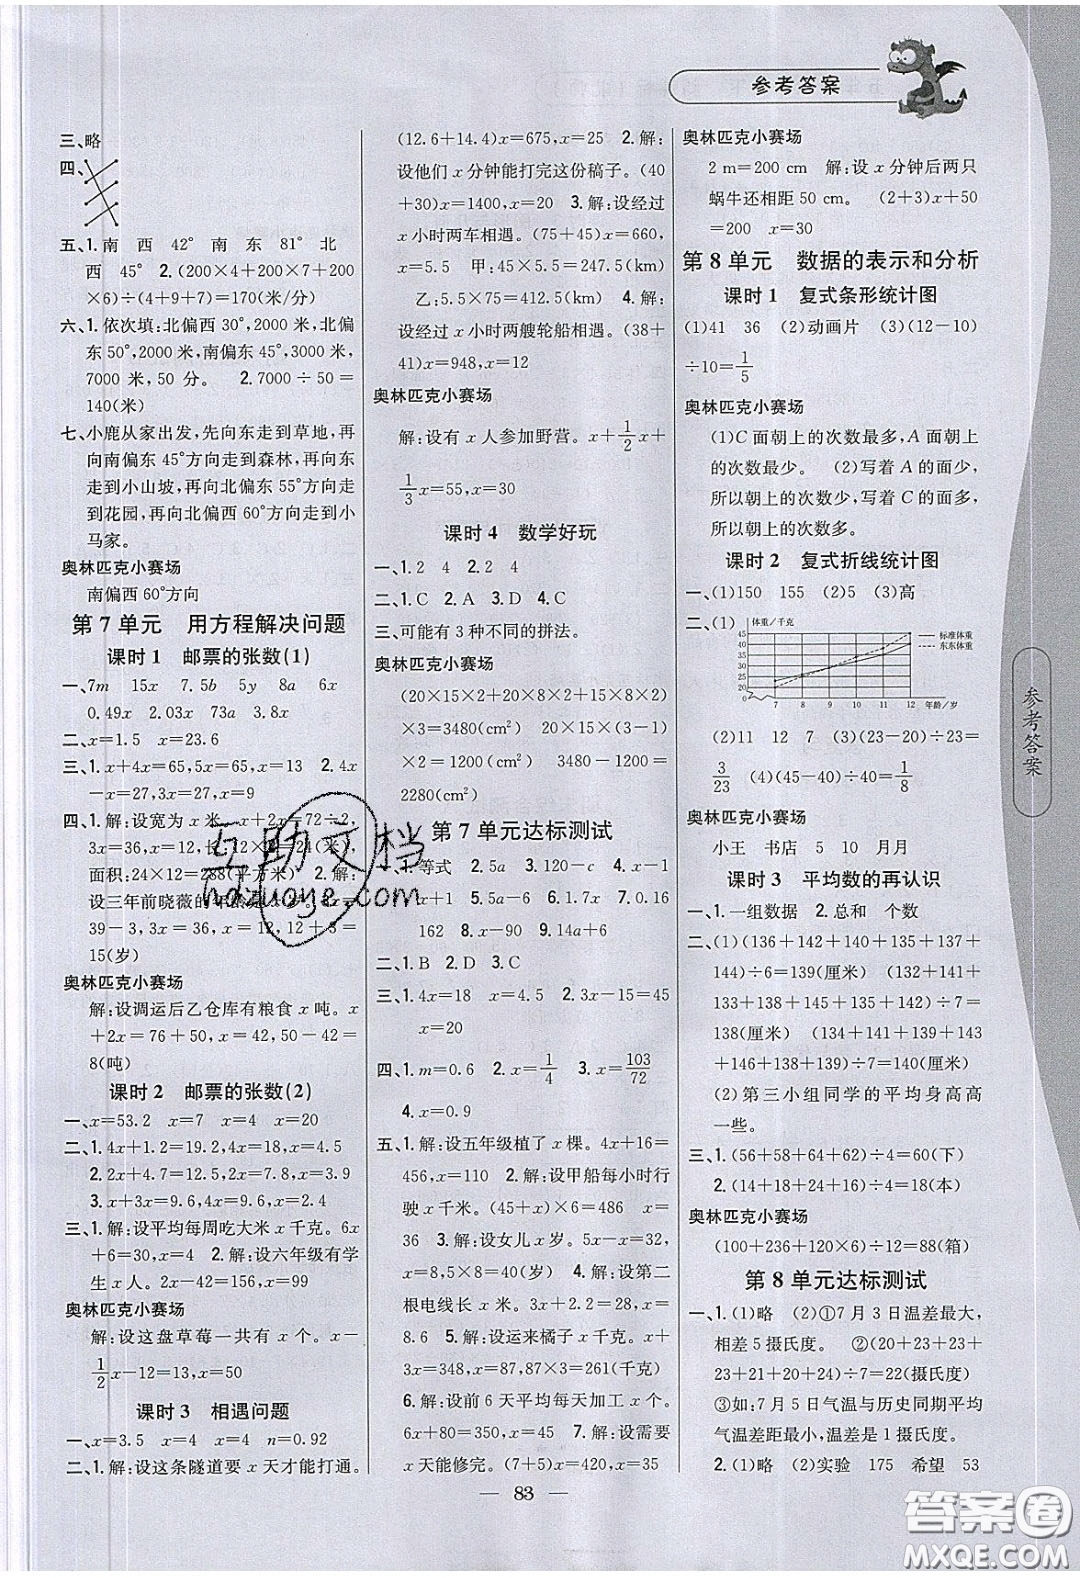 参考答案
三、略
四、
五、1.南 西 42° 南 东 81° 北
西 45° 2.(200×4+200+200
×6)÷(4+9+7)=170(米/分)
六、1.依次填:北偏西30°,2000米,北偏
东50°,2000米,南偏东45°,3000米,
7000米,50分。 2.7000÷50=
140(米)
七、小鹿从家出发,先向东走到草地,再
向南偏东45°方向走到森林,再向东
走到小山坡,再向北偏东55°方向走
到花园,又向北偏西60°方向走到小
马家。
奥林匹克小赛场
南偏西60°方向
第7单元 用方程解决问题
课时1 邮票的张数(1)
一、7m 15x 7.5b 5y 8a 6x
0.49x 42a 73a 3.8x
二、x=1.5 x=23.6
三、1.x+4x=65,5x=65,x=13 2.4x
-x=45,3x=45,x=15
四、1.解:设宽为x米。x+2x=72÷2,
3x=36,x=12,长:12×2=24(米),
面积:24×12=288(平方米) 2.解:
设三年前晓薇的年龄是x岁。2x+x=
39-3,3x=36,x=12,12+3=
15(岁)
奥林匹克小赛场
解:设调运后乙仓库有粮食x吨。x
+2x=76+50,x=42,50-42=
8(吨)
课时2 邮票的张数(2)
一、x=53.2 x=7 x=4 x=20
二、1.4x+1.2=19.2,4x=18,x=4.5
2.2x+4.7=12.5,2x=7.8,x=3.9
3.x+3x=9.6,4x=9.6,x=2.4
三、1.解:设平均每周吃大米x千克。6x
+6=30,x=4 2.解:设六年级有学
生x人。2x-42=156,x=99
奥林匹克小赛场
解:设这盘草莓一共有x个。x-
1/2x-12=13,x=50
课时3 相遇问题
一、x=3.5 x=4 x=4 n=0.92
二、1.解:设这条隧道要x天才能打通。
(12.6+14.4)x=675,x=25 2.解:
设他们x分钟能打完这份稿子。(40
+30)x=1400,x=20 3.解:设经过
x小时两车相遇。(75+45)x=660,
x=5.5 甲:45×5.5=247.5(千米)
乙:5.5×75=412.5(千米) 4.解:
设经过x小时两艘轮船相遇。(38+
41)x=948,x=12
奥林匹克小赛场
解:设有x人参加野营。x+1/2x+
1/3x=55,x=30
课时4 数学好玩
一、1.2 4 2.2 4
二、1.C 2.A 3.D 4.C
三、可能有3种不同的拼法。
奥林匹克小赛场
(20×15×2+20×8×2+15×8×2)
×3=3480(cm²) 20×15×(3-1)
×2=1200(cm²) 3480-1200=
2280(cm²)
第7单元达标测试
一、1.等式 2.5a 3.120-c 4.x-1
x+1 5.5a-6 6.1.7x 7.0.16
162 8.x-90 9.14a+6
二、1.B 2.D 3.C
三、1.4x=18 x=4.5 2.3x-15=45
x=20
四、1.m=0.6 2.x=1/4 3.x=103/72
4.x=0.9
五、1.解:设五年级植了x棵。4x+16=
456,x=110 2.解:设甲船每小时行
驶x千米。(45+x)×6=486 x=
36 3.解:设女儿x岁。5x-x=68,
x=17,5x=85(岁) 4.解:设第二
根电线长x米。3x+3.2=29,x=
8.6 5.解:设运来橘子x千克。x+
3x=348,x=87,87×3=261(千克)
6.解:设前6天平均每天加工x个。
6x+80=350,x=45 7.解:需要
x天能修完。(7+5)x=420,x=35
奥林匹克小赛场
2 m=200 cm 解:设x分钟后两只
蜗牛还相距50厘米。(2+3)x+50
=200 x=30
第8单元 数据的表示和分析
课时1 复式条形统计图
(1)41 36 (2)动画片 (3)(12-10)
÷10=1/5
奥林匹克小赛场
(1)C面朝上的次数最多,A面朝上
的次数最少。 (2)写着A的面少,
所以朝上的次数少,写着C的面多,
所以朝上的次数多。
课时2 复式折线统计图
一、(1)150 155 (2)5 (3)高
二、(1) 体重/千克
45
40
35
30
25
20
0 7 8 9 10 11 12 年龄/岁
标准体重
东东体重
(2)11 12 7 (3)(43-40)÷23=
3/23 (4)(45-40)÷40=1/8
奥林匹克小赛场
小王 书店 5 10 月月
课时3 平均数的再认识
一、1.一组数据 2.总和 个数
二、(1)(136+142+140+135+137+
144)÷6=139(厘米) (132+141+
135+138+145+135+140)÷7=
138(厘米) (134+135+140+145
+146+138+135)÷7=139(厘米)
(2)第三小组同学的平均身高高
一些。
三、1.(56+58+64+62)÷4=60(下)
2.(14+16+18+24)÷4=18(本)
奥林匹克小赛场
(100+236+120×6)÷12=88(箱)
第8单元达标测试
一、1.(1)略 (2)①7月3日温差最大,
相差5摄氏度。 ②(20+23+23+
23+21+20+24)÷7=22(摄氏度)
③如:7月5日气温与历史同期平均
气温差距最大。
2.(1)略 (2)实验 175 希望 53
参考答案
83
互助文档
hdzuoye.com
答案圈
MXQE.COM